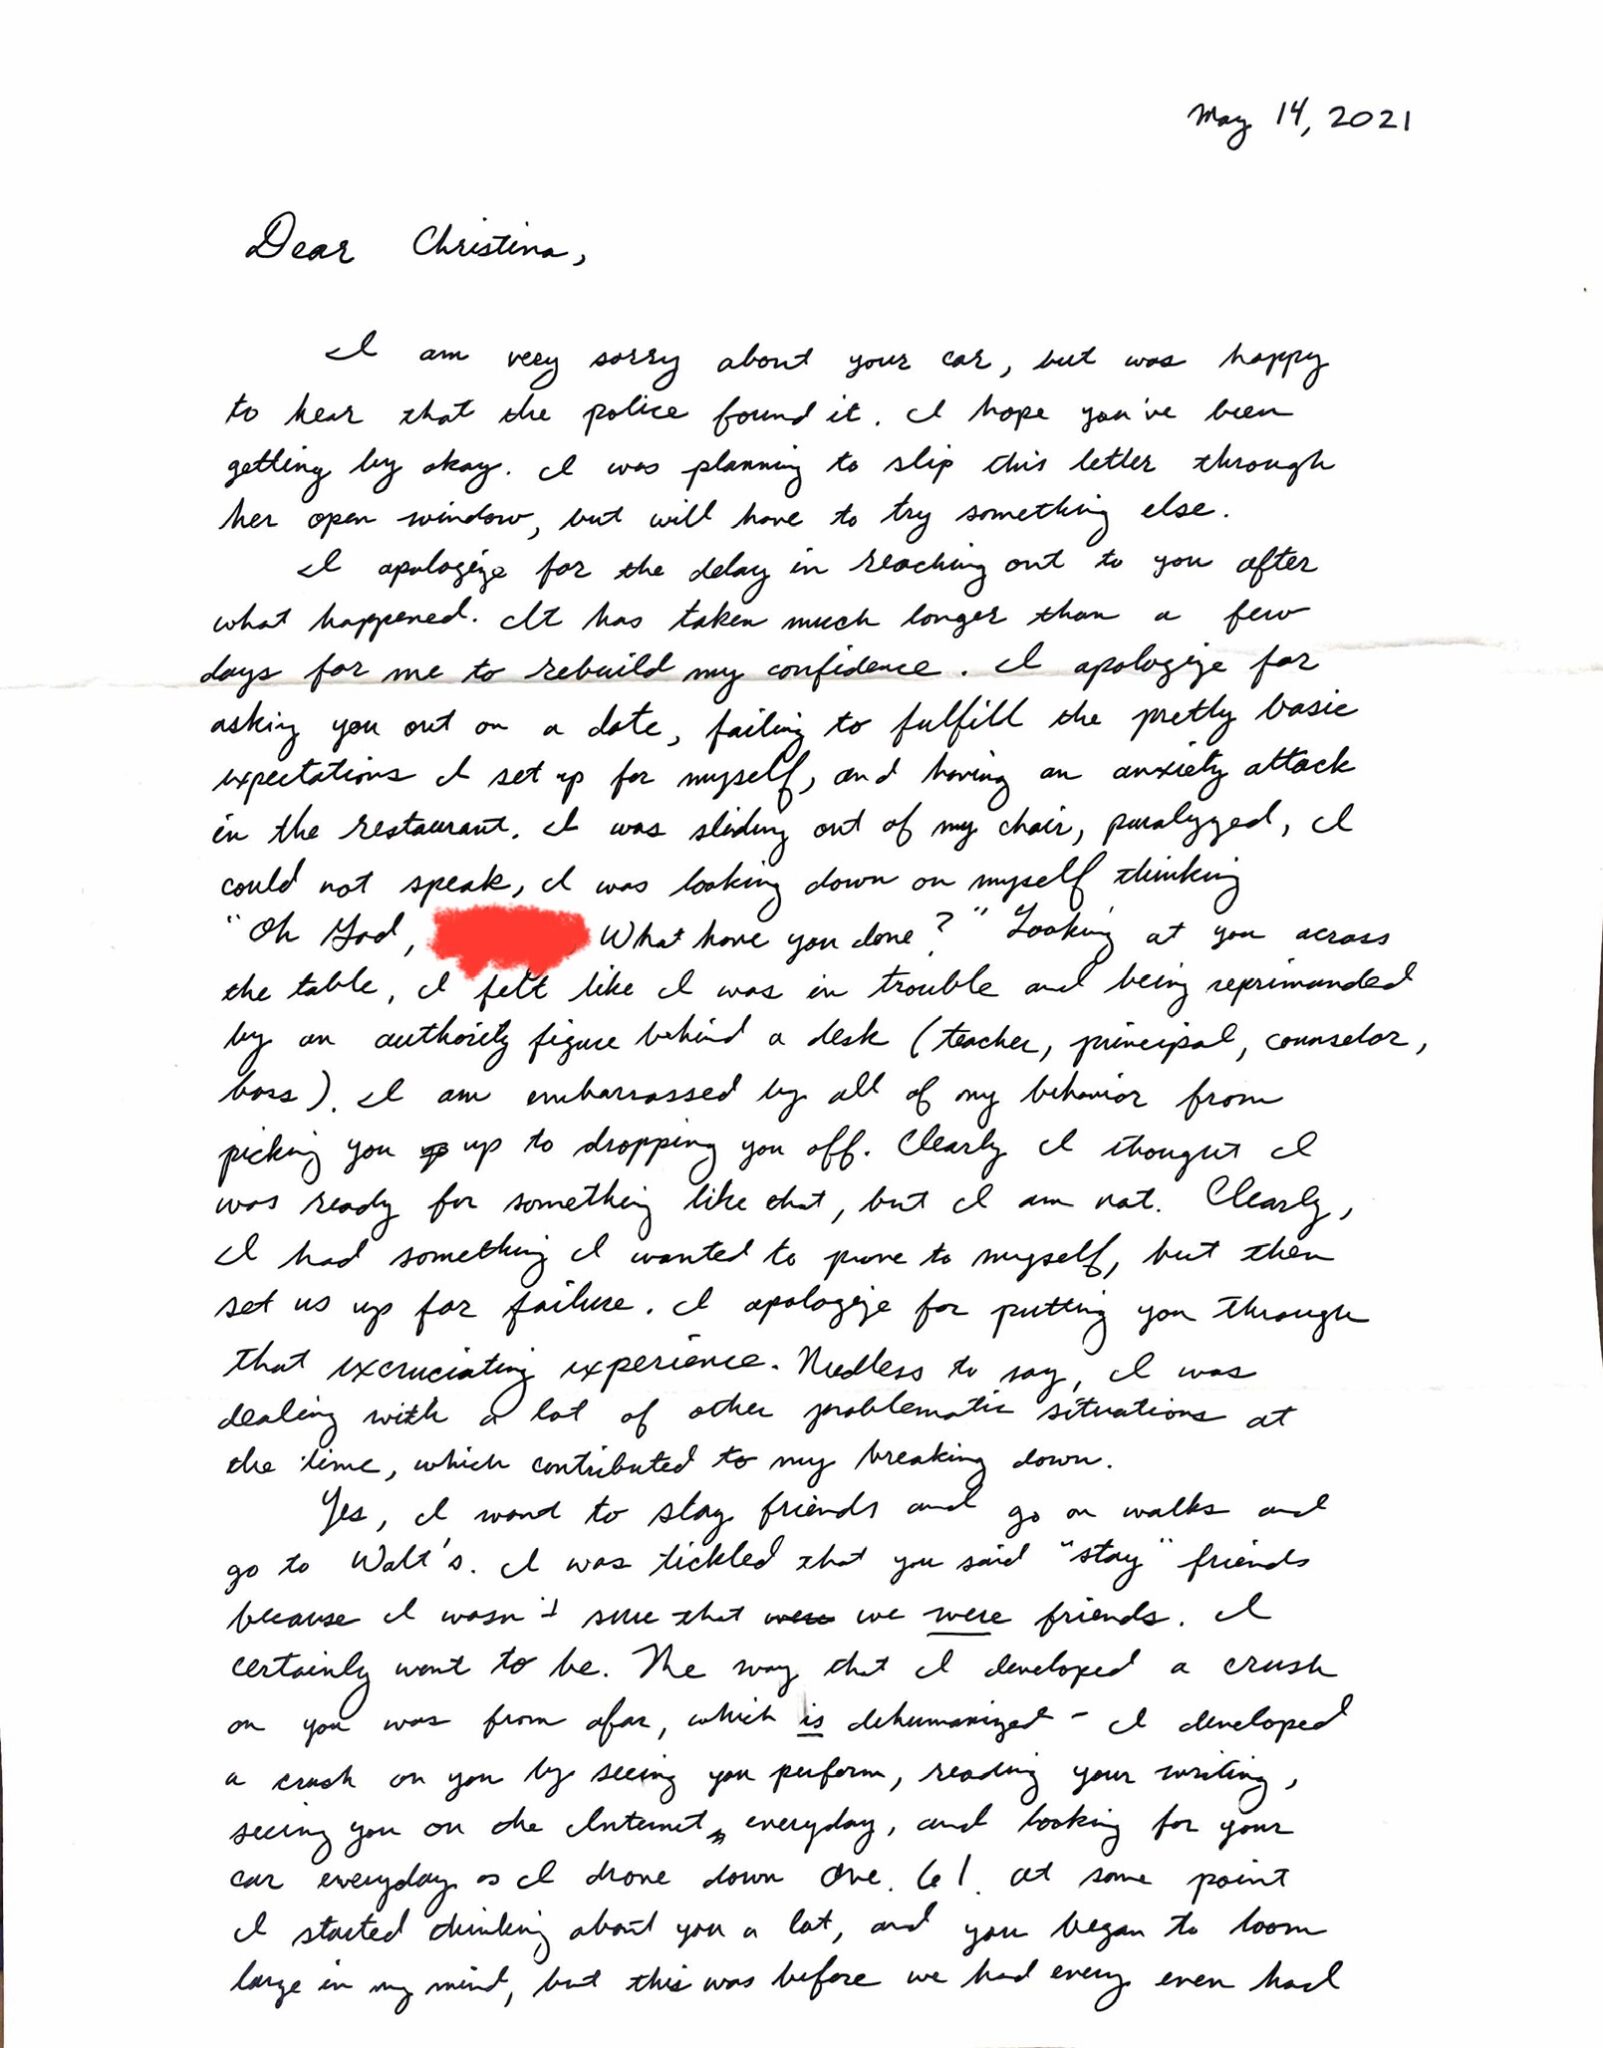 May 14, 2021
Dear Christina,
I am very sorry about your car, but was happy
to hear that the police found it. I hope you've been
getting by okay. I was planning to slip this letter through
her open window, but will have to try something else.
I apologize for the delay in reaching out to you after
what happened. It has taken much longer than a few
days for me to rebuild my confidence. I apologize for
asking you out on a date, failing to fulfill the pretty basic
expectations I set up for myself, and having an anxiety attack
in the restaurant. I was sliding out of my chair, paralyzed, I
could not speak, I was looking down on myself thinking
"Oh God, What have you done?" Looking at you across
the table, I felt like I was in trouble and being reprimanded
by an authority figure behind a desk (teacher, principal, counselor,
boss). I am embarrassed by all of my behavior from
picking you up up to dropping you off. Clearly I thought I
was ready for something like that, but I am not. Clearly,
I had something I wanted to prove to myself, but then
set us up for failure. I apologize for putting you through
that excruciating experience. Needless to say, I was
dealing with a lot of other problematic situations at
the time, which contributed to my breaking down.
Yes, I want to stay friends and go on walks and
go to Walt's. I was tickled that you said "stay" friends
because I wasn't sure that were we were friends. I
certainly want to be. The way that I developed a crush
on you was from afar, which is dehumanized - I developed
a crush on you by seeing you perform, reading your writing,
seeing you on the Internet, everyday, and looking for your
car everyday as I drove down Ave. 61. At some point
I started thinking about you a lot, and you began to loom
large in my mind, but this was before we had every even had